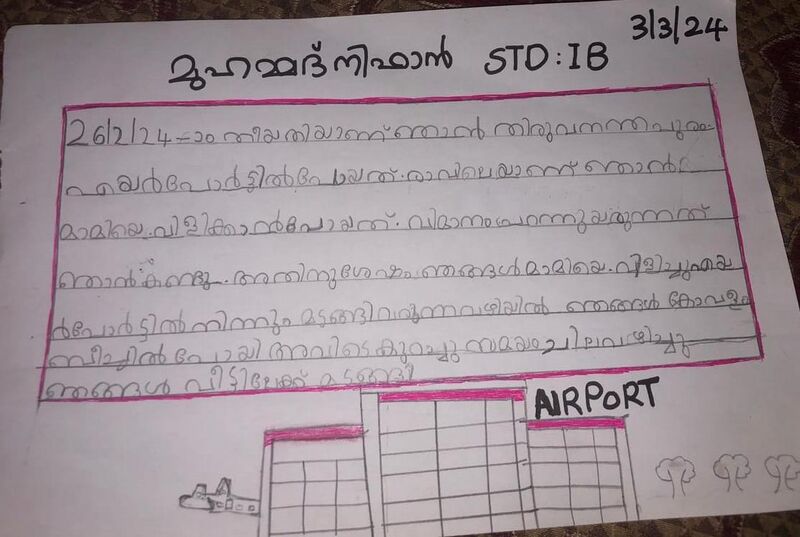 3/3/24
മുഹമ്മദ് നിഫാൻ STD: I B
26/2/24-ാം തീയതിയാണ് ഞാൻ തിരുവനന്തപുരം
എയർപോർട്ടിൽപോയത്. രാവിലെയാണ് ഞാൻ
മാമിയെ വിളിക്കാൻപോയത്. വിമാനംപറന്നുയരുന്നത്
ഞാൻകണ്ടു. അതിനുശേഷം ഞങ്ങൾമാമിയെ വിളിച്ചുഎയ
ർപോർട്ടിൽനിന്നും മടങ്ങിവരുന്നവഴിയിൽ ഞങ്ങൾ കോവളം
ബീച്ചിൽപോയി അവിടെകുറച്ചു സമയംചിലവഴിച്ചു
ഞങ്ങൾ വീട്ടിലേക്ക് മടങ്ങി
AIRPORT